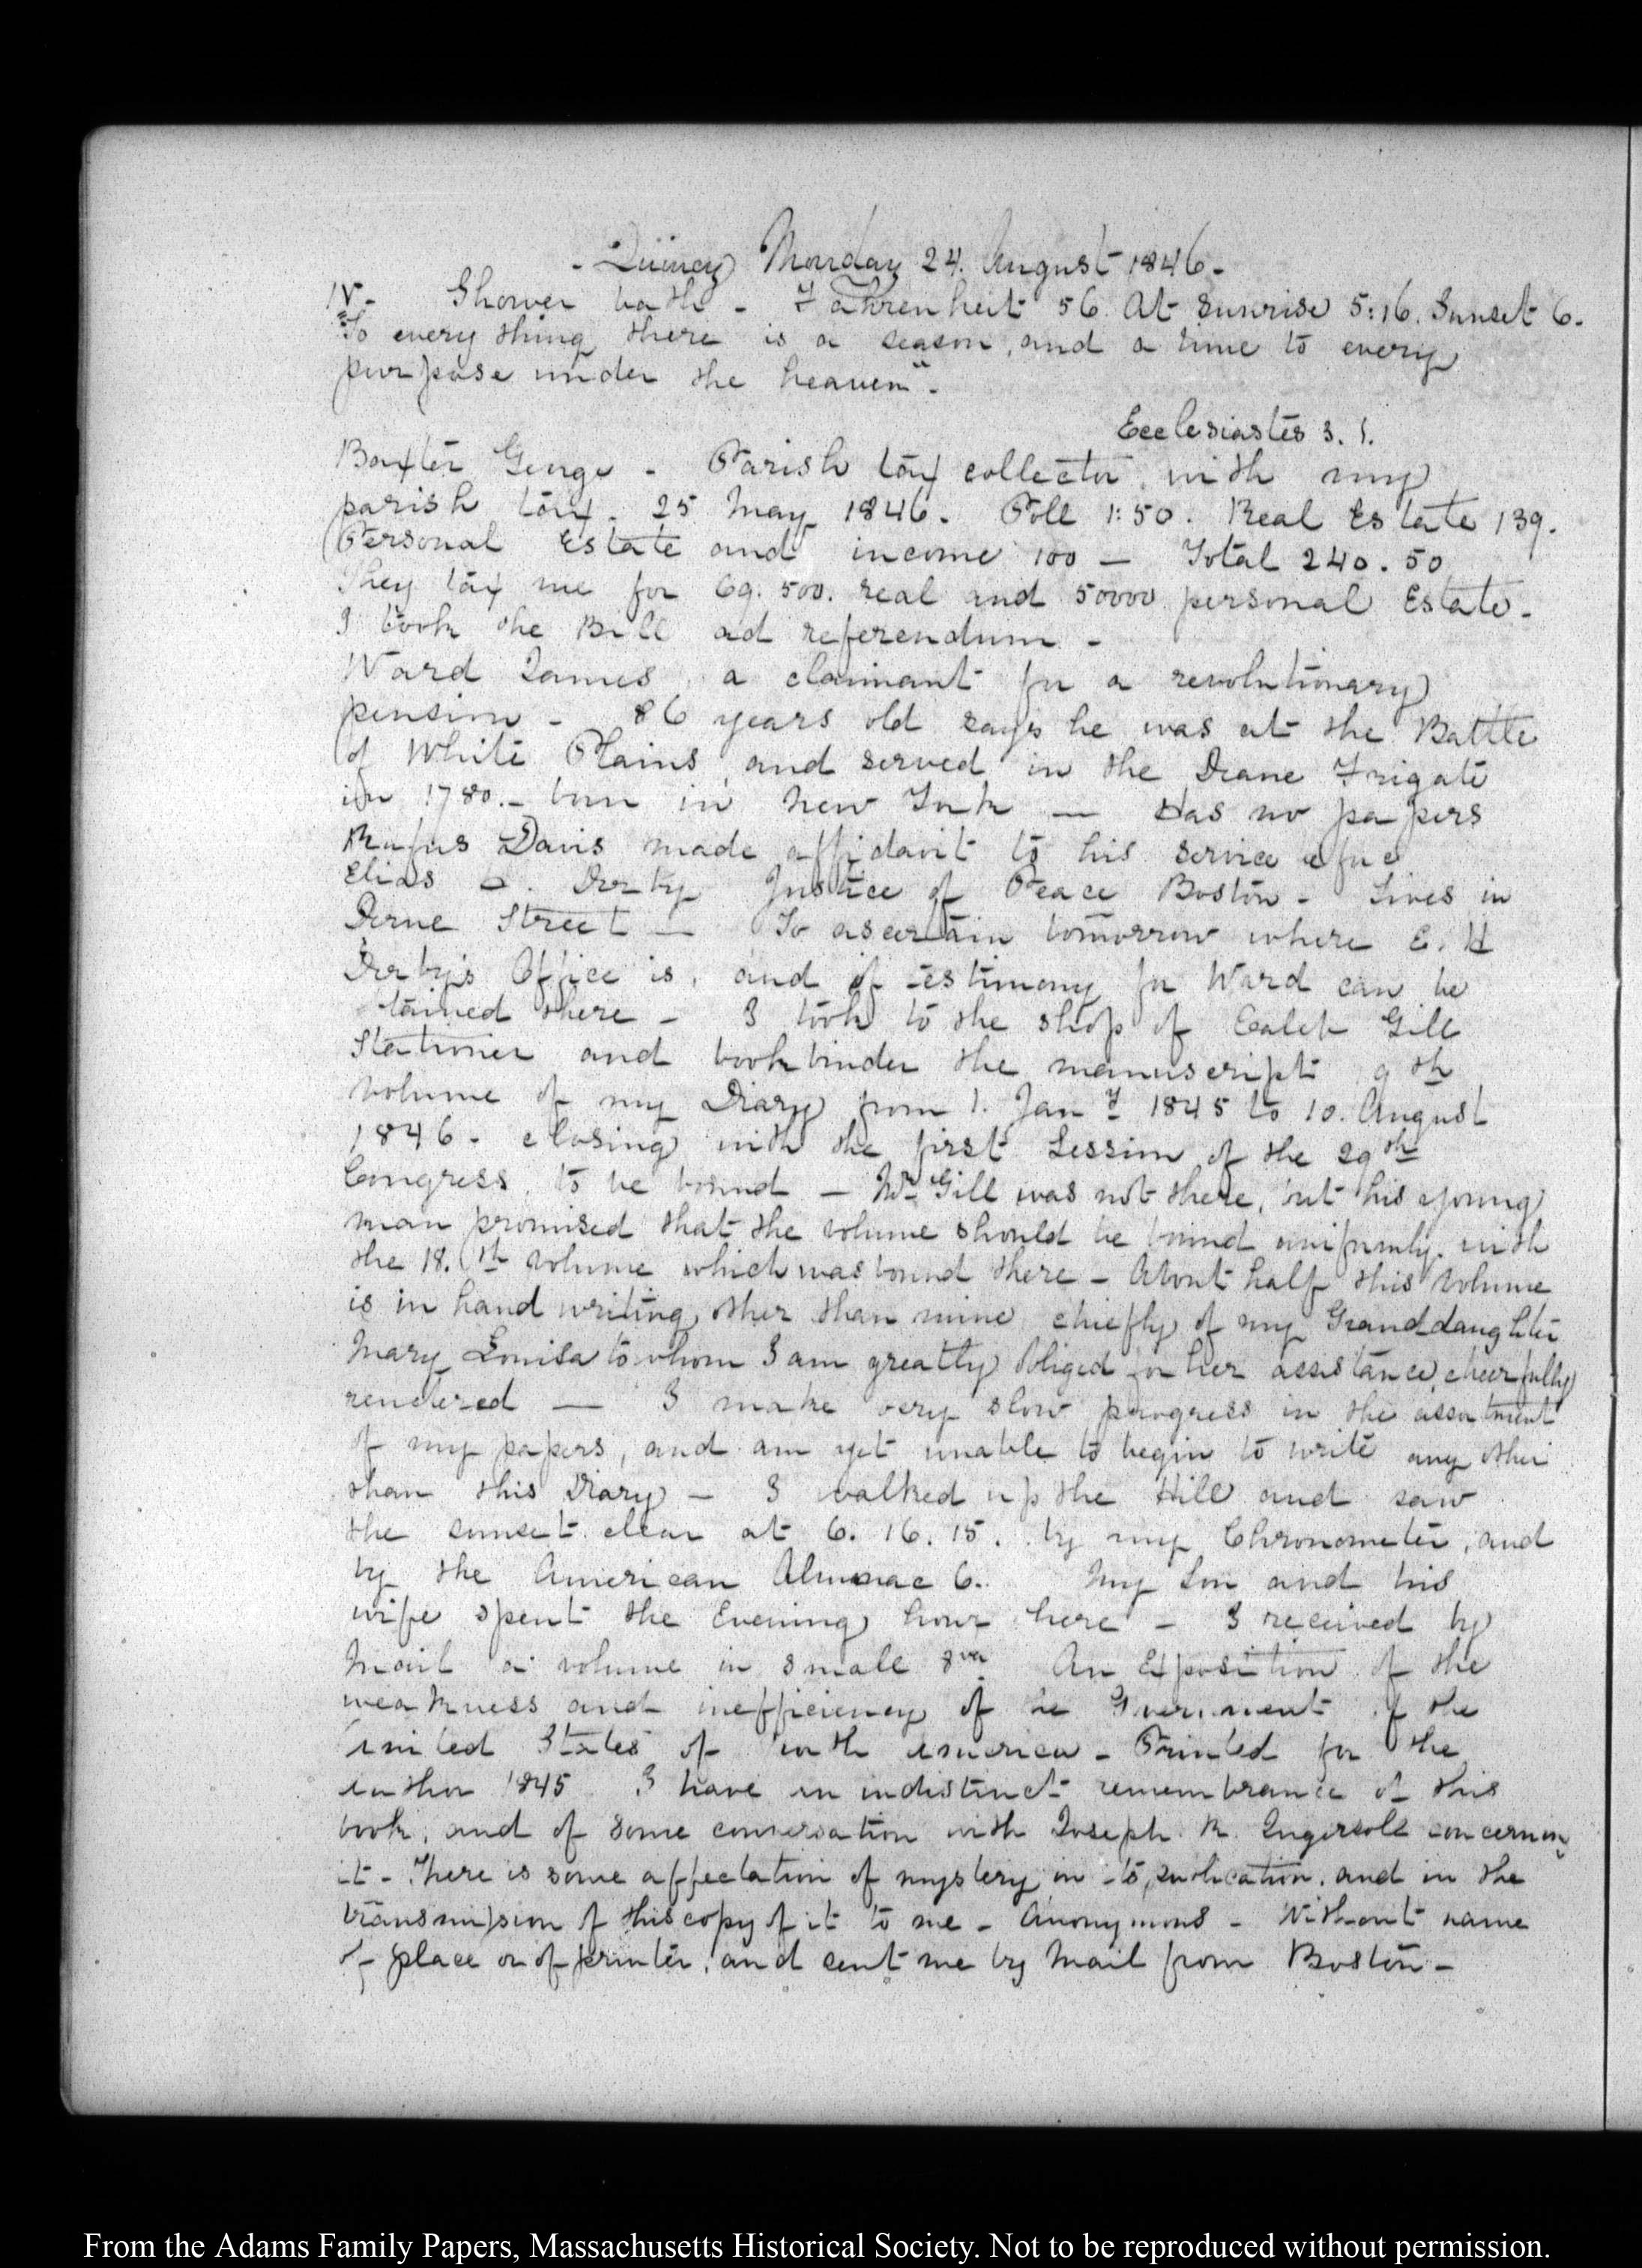 - Quincy Monday 24. August 1846 -
IV - Shower bath - Fahrenheit 56. At Sunrise 5:16. Sunset 6.
"To every thing there is a season, and a time to every
purpose under the heaven" -
Ecclesiastes 3. 1.
Baxter George - Parish tax collector, with my
parish tax. 25 May 1846. Poll 1:50. Real Estate 139.
Personal Estate and income 100 — Total 240.50
They tax me for 69.500. real and 50000 personal Estate -
I took the Bill ad referendum -
Ward James, a claimant for a revolutionary
pension - 86 years old says he was at the Battle
of White Plains, and served in the Deane Frigate
in 1780. - born in New York — Has no papers
Rufus Davis made affidavit to his service
Elias Derby Justice of Peace Boston - Lives in
Derne Street — To ascertain tomorrow where E. H
Derby's Office is, and if testimony for Ward can be
tained there - I took to the shop of Caleb Gill
Stationer and bookbinder the manuscript 9th
volume of my Diary from 1. Jany 1845 to 10. August
1846. closing with the first Session of the 29th
Congress, to be bound — Mr Gill was not there, but his young
man promised that the volume should be bound uniformly with
the 18.th volume which was bound there - About half this volume
is in hand writing other than mine, chiefly of my Granddaughter
Mary Louisa to whom I am greatly obliged for her assistance, cheerfully
rendered — I make very slow progress in the assortment
of my papers, and am yet unable to begin to write any other
than this Diary - I walked up the Hill and saw
the sunset clear at 6. 16. 15. by my Chronometer, and
by the American Almanac 6. My Son and his
wife spent the Evening hour here - I received by
Mail a volume in small 8vo An Exposition of the
weakness and inefficiency of the Government of the
United States of North America - Printed for the
author 1845 I have an indistinct remembrance of this
book, and of some conversation with Joseph R. Ingersoll concerning
it - There is some affectation of mystery in its publication, and in the
transmission of this copy of it to me - Anonymous - Without name
of place or of printer, and sent me by Mail from Boston -
From the Adams Family Papers, Massachusetts Historical Society. Not to be reproduced without permission.